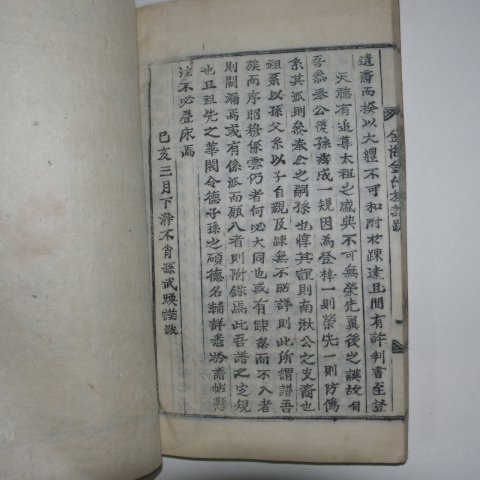 金海金氏族譜跋
遺裔而揆以大體不可和附於疎遠且間有許判書至證
天聽有追尊太祖之盛典不可無榮先翼後之謨故自
吾叅奉公後孫裔成一規因為登梓一則榮先一則防僞
系其派則叅奉公之嗣孫也惇其誼則南湫公之支裔也
祖系以孫父系以子自親及疎無不昭詳則此所謂譜吾
族而序昭穆係雲仍者何必大同也哉有疎忽而不入者
則闕漏焉或有係派而願入者則附錄焉此吾譜之定規
也且祖先之華閥令德子孫之碩德名輔詳悉於譜帖懸
註不必疊床焉
己亥三月下澣不肖孫武煥謹跋